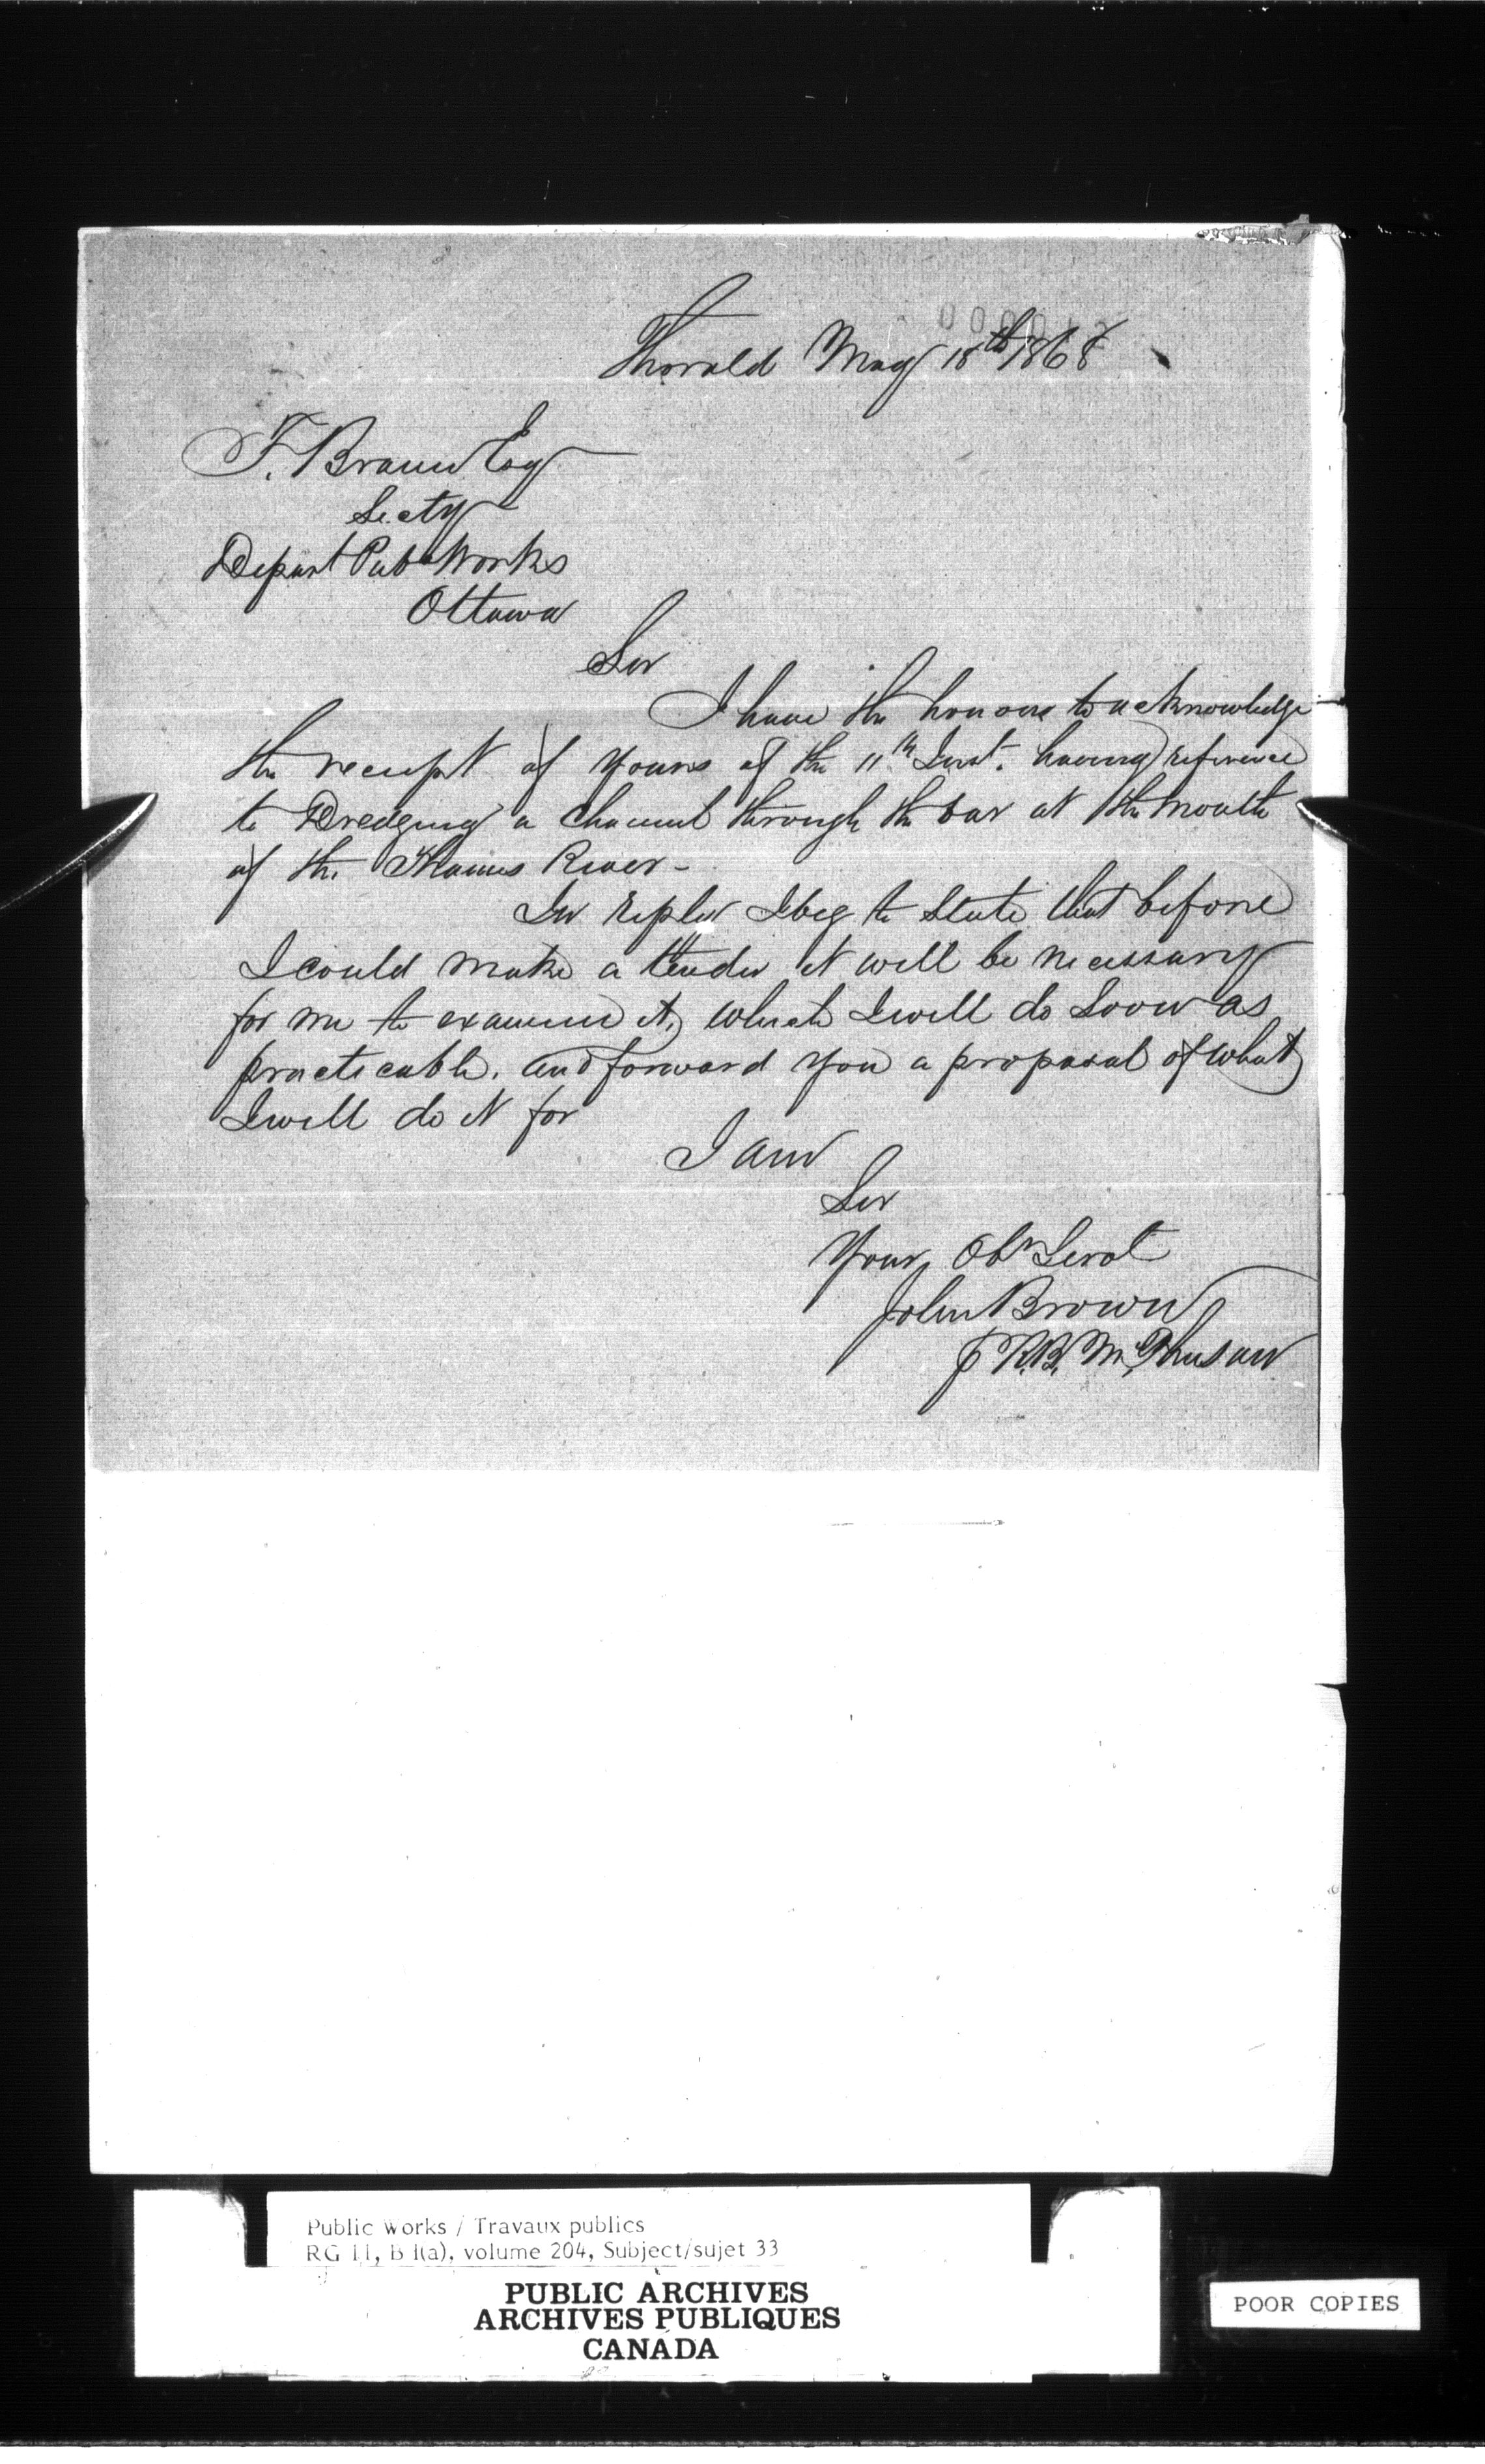 Thorold May 18th 1868
F. Braun Esq
Secty
Depart Pub Works
Ottawa
Sir
I have the honour to acknowledge
the receipt of yours of the 11th Inst. having reference
to Dredging a Channel through the bar at the mouth
of the Thames River -
In reply I beg to State that before
I could make a tender it will be necessary
for me to examine it, which I will do Soon as
practicable. and forward you a proposal of what
I will do it for
I am
Sir
Your Obt Servt
John Brown
R.B. Mc
Public Works / Travaux publics
RG 11, B 1(a), volume 204, Subject/sujet 33
PUBLIC ARCHIVES
ARCHIVES PUBLIQUES
CANADA
POOR COPIES